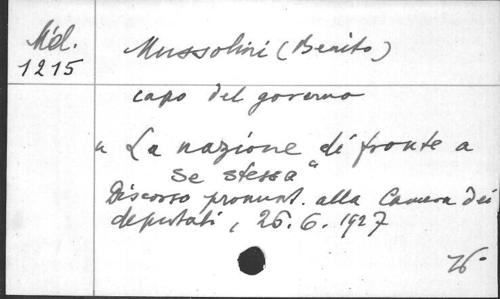 Mél.
1215
Mussolini (Benito)
capo del governo
"La nazione di fronte a
se stessa"
Discorso pronunt. alla Camera dei
deputati, 26.6.1927